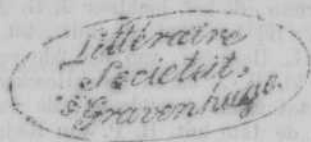 Littéraire
Societeit,
'sGravenhage.